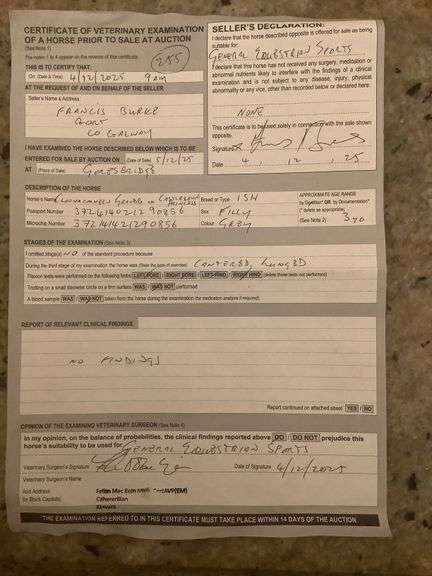 CERTIFICATE OF VETERINARY EXAMINATION
OF A HORSE PRIOR TO SALE AT AUCTION
(See Note 1)
The notes 1 to 4 appear on the reverse of this certificate
255
THIS IS TO CERTIFY THAT:
On: (Date & Time) 4/12/2025 9am
AT THE REQUEST OF AND ON BEHALF OF THE SELLER
Seller's Name & Address
FRANCIS BURKE
GORT
CO GALWAY
I HAVE EXAMINED THE HORSE DESCRIBED BELOW WHICH IS TO BE
ENTERED FOR SALE BY AUCTION ON (Date of Sale) 5/12/25
AT (Place of Sale) GORESBRIDGE
SELLER'S DECLARATION:
I declare that the horse described opposite is offered for sale as being
suitable for:
GENERAL EQUESTRIAN SPORTS
I declare that this horse has not received any surgery, medication or
abnormal nutrients likely to interfere with the findings of a clinical
examination and is not subject to any disease, injury, physical
abnormality or any vice, other than recorded below or declared here:
NONE
This certificate to be used solely in connection with the sale shown
opposite.
Signature
Date 4 . 12 . 25
DESCRIPTION OF THE HORSE
Horse's Name Breed or Type ISH
Passport Number 372414021290856 Sex FILLY
Microchip Number Colour GREY
APPROXIMATE AGE RANGE
by Dentition* OR by Documentation*
(* delete as appropriate)
(See Note 2) 3yo
STAGES OF THE EXAMINATION (See Note 3)
I omitted stage(s) NO of the standard procedure because
During the third stage of my examination the horse was (State the type of exercise) CANTERED, LUNGED
Flexion tests were performed on the following limbs LEFT FORE / RIGHT FORE / LEFT HIND / RIGHT HIND (delete those tests not performed)
Trotting on a small diameter circle on a firm surface WAS / WAS NOT performed
A blood sample WAS / WAS NOT taken from the horse during the examination (for medication analysis if required)
REPORT OF RELEVANT CLINICAL FINDINGS
NO FINDINGS
Report continued on attached sheet YES / NO
OPINION OF THE EXAMINING VETERINARY SURGEON (See Note 4)
In my opinion, on the balance of probabilities, the clinical findings reported above DO / DO NOT prejudice this
horse's suitability to be used for GENERAL EQUESTRIAN SPORTS
Veterinary Surgeon's Signature Date of Signature 4/12/2025
Veterinary Surgeon's Name
And Address
(in Block Capitals)
THE EXAMINATION REFERRED TO IN THIS CERTIFICATE MUST TAKE PLACE WITHIN 14 DAYS OF THE AUCTION